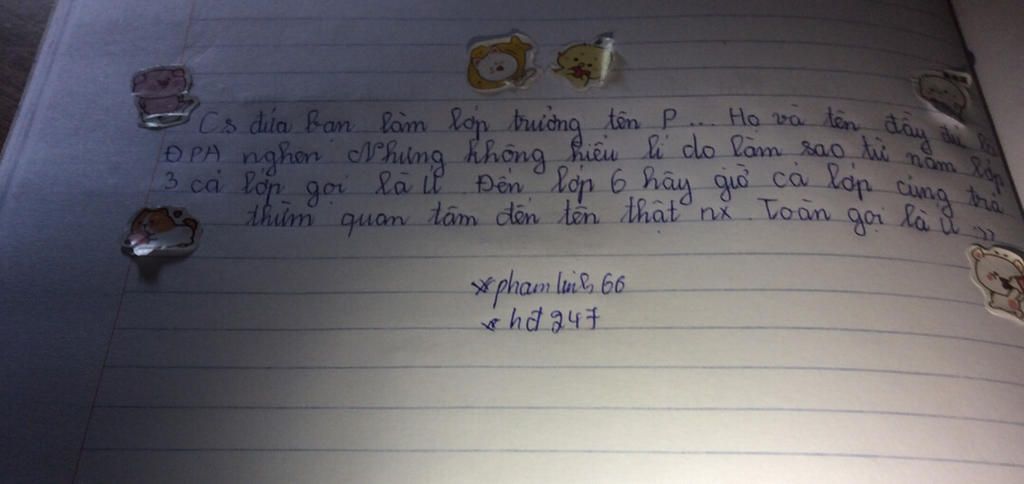 Cs đứa bạn làm lớp trưởng tên P... Họ và tên đầy đủ là
ĐPA nghen Nhưng không hiểu lí do làm sao từ năm lớp
3 cả lớp gọi là Ü Đến lớp 6 hây giờ cả lớp cũng trả
thừm quan tâm đến tên thật nx. Toàn gọi là Ü >>
*phamlinh66
*hđ247